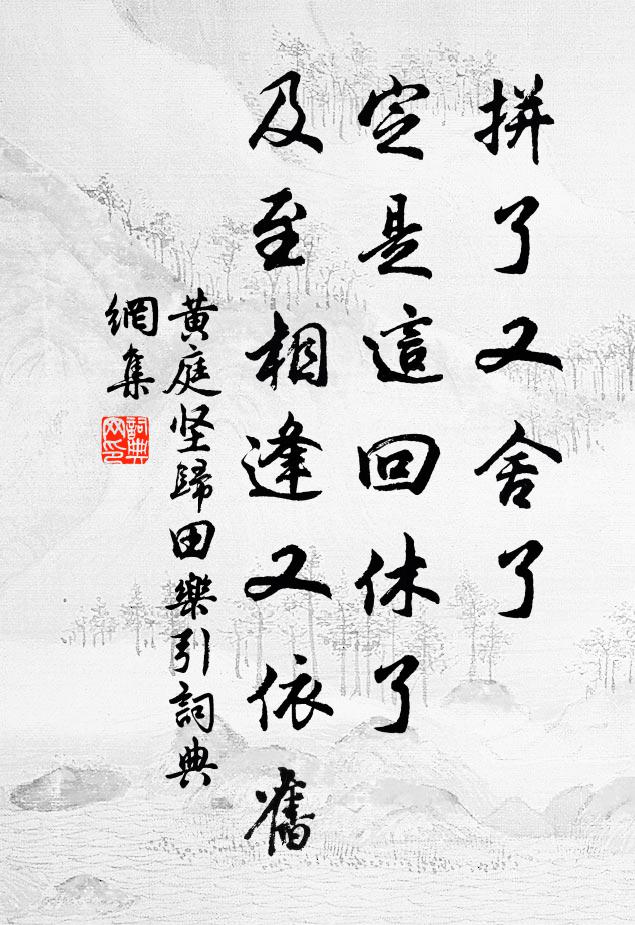 拼了又舍了
定是這回休了
及至相逢又依舊
黄庭坚歸田樂引詞典
網集
詞典
网印